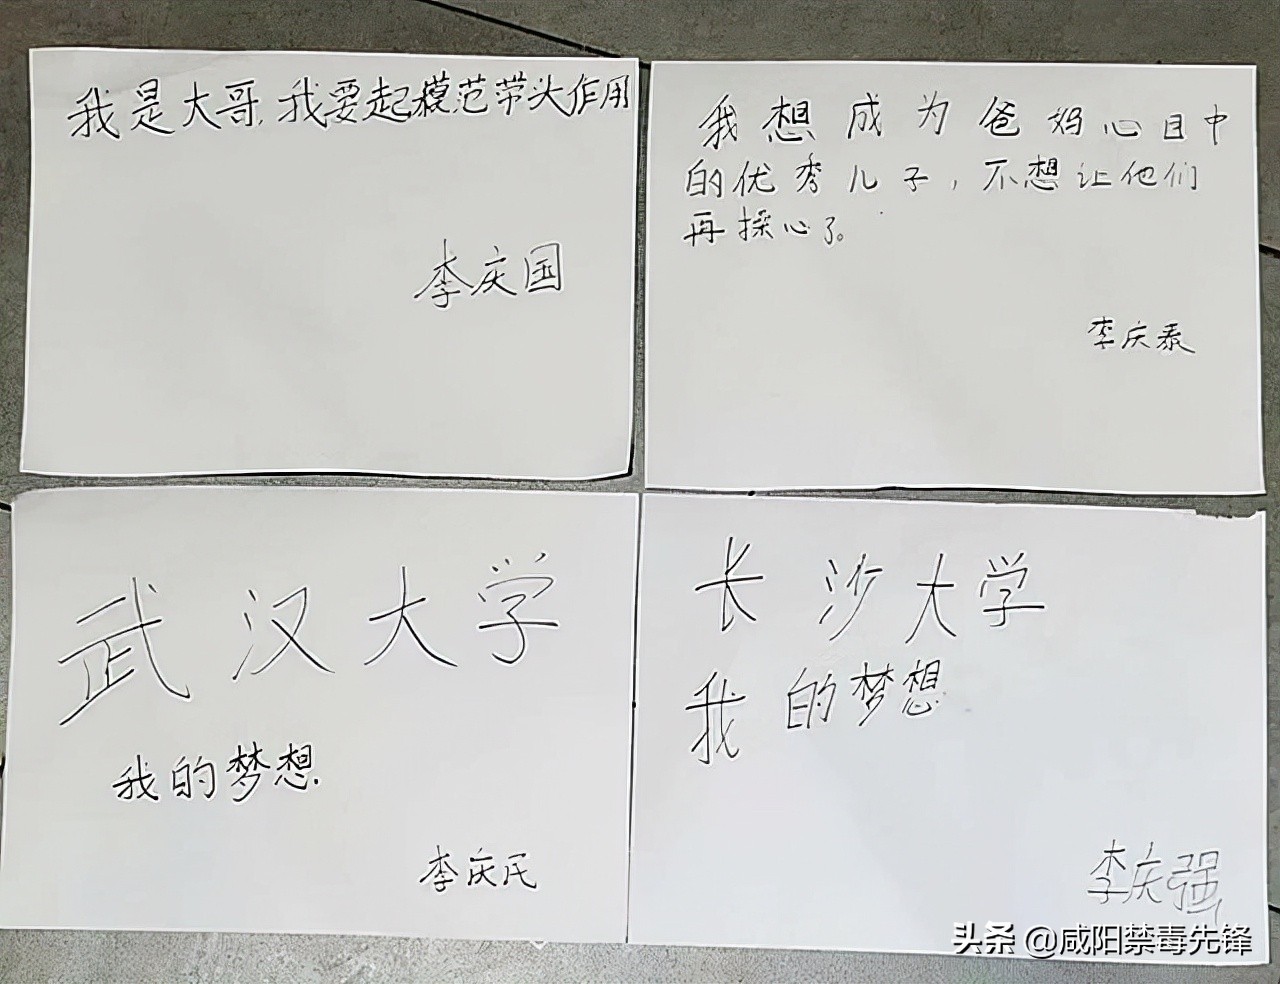 我是大哥,我要起模范带头作用
李庆国
我想成为爸妈心目中
的优秀儿子,不想让他们
再操心了。
李庆泰
武汉大学
我的梦想.
李庆民
长沙大学
我的梦想
李庆强
头条 @咸阳禁毒先锋